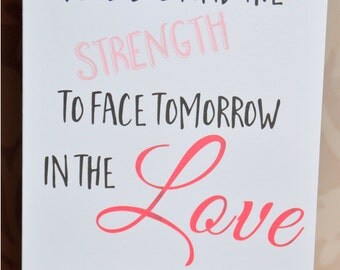 THE
STRENGTH
TO FACE TOMORROW
IN THE
Love